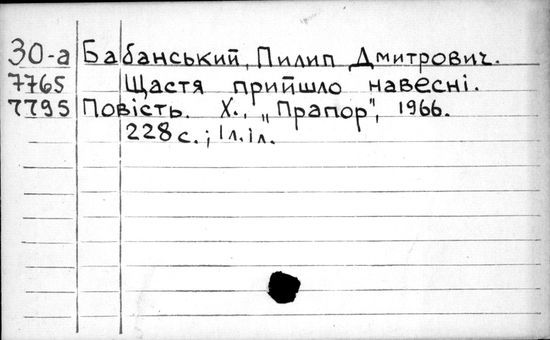 30-а Бабанський, Пилип Дмитрович.
7765 Щастя прийшло навесні.
7795 Повість. Х., „Прапор", 1966.
228 с.; 1 л. іл.